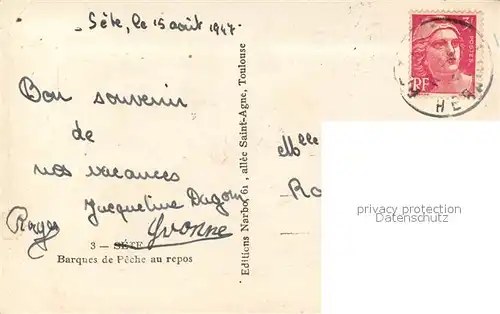 Sète, le 15 août 1947.
Bon souvenir
de
nos vacances
Jacqueline
Yvonne
3 - SÉTE
Barques de Pêche au repos
Editions Narbo, 61, allée Saint-Agne, Toulouse
POSTES
RF
HERAULT
Mlle
Ro
privacy protection
Datenschutz